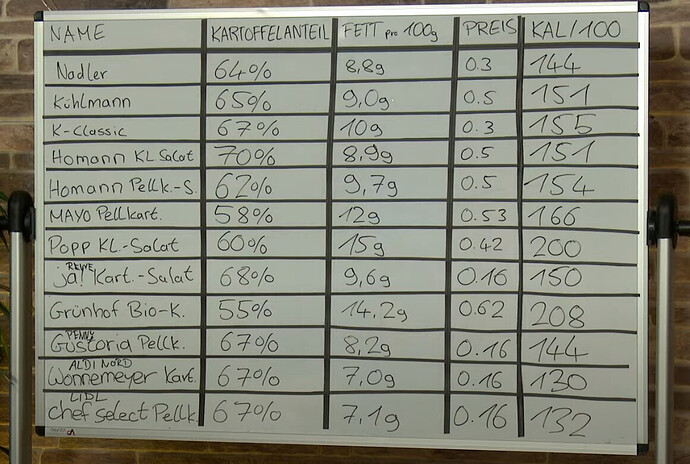 NAME KARTOFFELANTEIL FETT pro 100g PREIS KAL/100
Nadler 64% 8,8g 0.3 144
Kühlmann 65% 9,0g 0.5 151
K-Classic 67% 10g 0.3 155
Homann KL Salat 70% 8,9g 0.5 151
Homann Pellk.-S. 62% 9,7g 0.5 154
MAYO Pellkart. 58% 12g 0.53 166
Popp KL.-Salat 60% 15g 0.42 200
REWE
ja! Kart.-Salat 68% 9,6g 0.16 150
Grünhof Bio-K. 55% 14,2g 0.62 208
PENNY
Gustoria Pellk. 67% 8,2g 0.16 144
ALDI NORD
Wonnemeyer Kart. 67% 7,0g 0.16 130
LIDL
chef select Pellk. 67% 7,1g 0.16 132